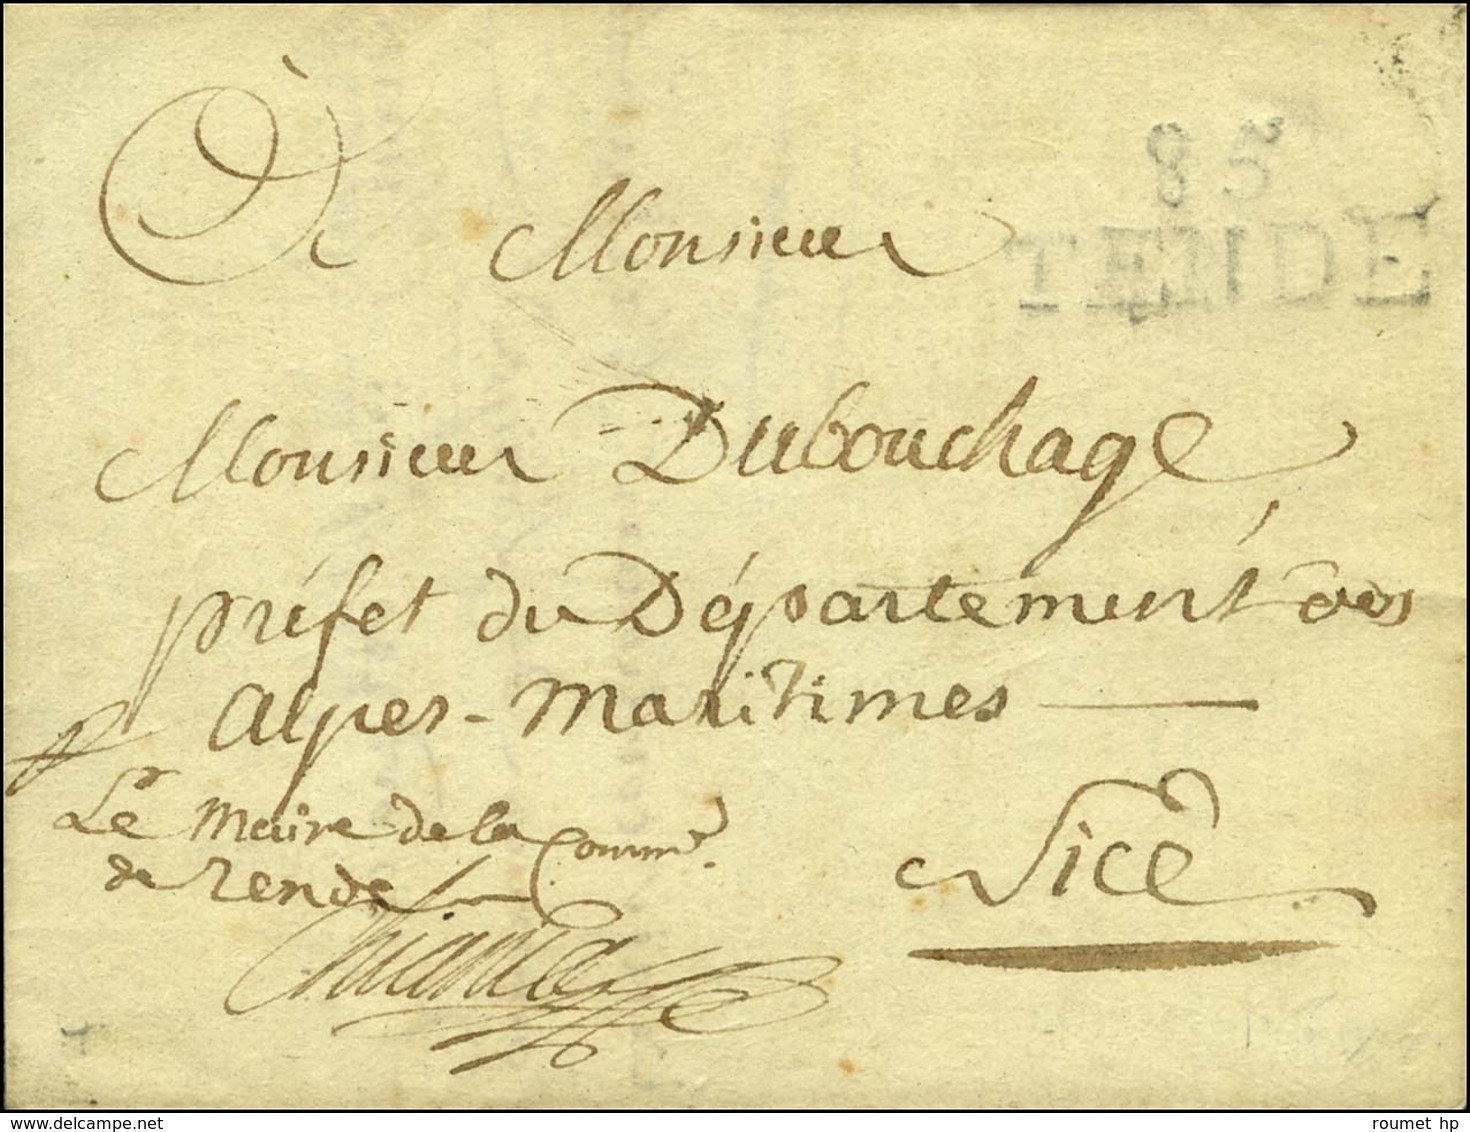 85
TENDE
A Monsieur
Monsieur Dubouchage
préfet du Département des
Alpes-Maritimes
Le Maire de la Comm.e
de Tende
Nice
roumet hp